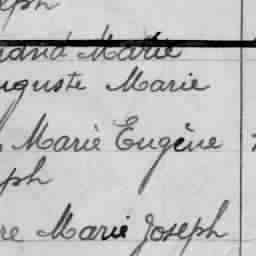 eph
rand Marie
uguste Marie
Marie Eugène
ph
re Marie Joseph